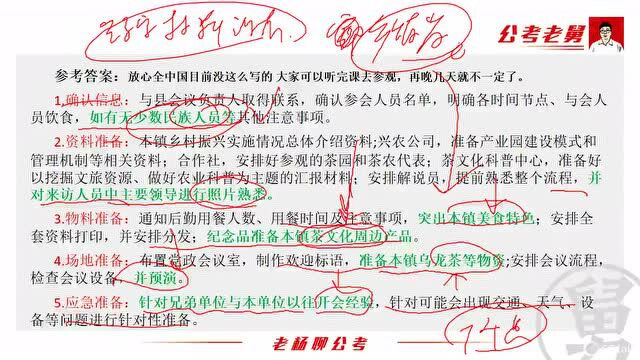 公考老舅
参考答案：放心全中国目前没这么写的 大家可以听完课去参观，再晚几天就不一定了。
1.确认信息：与县会议负责人取得联系，确认参会人员名单，明确各时间节点、与会人
员饮食，如有无少数民族人员等其他注意事项。
2.资料准备：本镇乡村振兴实施情况总体介绍资料;兴农公司，准备产业园建设模式和
管理机制等相关资料；合作社，安排好参观的茶园和茶农代表；茶文化科普中心，准备好
以挖掘文旅资源、做好农业科普为主题的汇报材料；安排解说员，提前熟悉整个流程，并
对来访人员中主要领导进行照片熟悉。
3.物料准备：通知后勤用餐人数、用餐时间及注意事项，突出本镇美食特色；安排全
套资料打印，并安排分发；纪念品准备本镇茶文化周边产品。
4.场地准备：布置党政会议室，制作欢迎标语，准备本镇乌龙茶等物资;安排会议流程，
检查会议设备，并预演。
5.应急准备：针对兄弟单位与本单位以往开会经验，针对可能会出现交通、天气、设
备等问题进行针对性准备。
老杨聊公考
舅